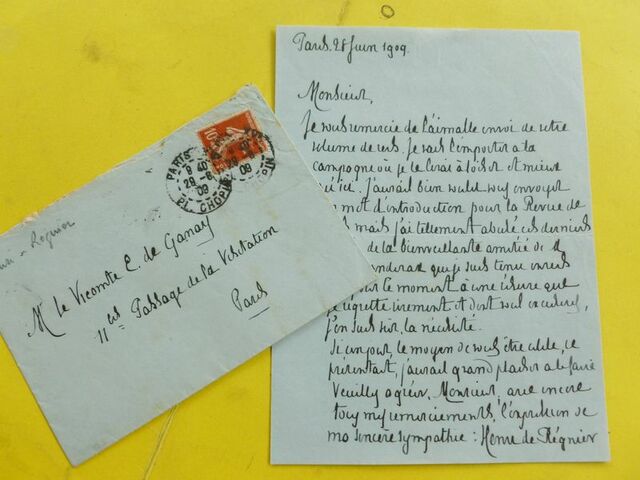 Paris. 28 Juin 1909.
Monsieur,
Je vous remercie de l'aimable envoi de votre
volume de vers. Je vais l'emporter à la
campagne où je le lirai à loisir et mieux
qu'ici. J'aurais bien voulu vous envoyer
mot d'introduction pour la Revue de
mais j'ai tellement abusé ces derniers
de la bienveillante amitié de M
que je suis tenu envers
pour le moment à une réserve que
je regrette vivement et dont vous excuserez,
j'en suis sûr, la nécessité.
Si un jour, le moyen de vous être utile, se
présentait, j'aurais grand plaisir à le faire
Veuillez agréer, Monsieur, avec encore
tous mes remerciements, l'expression de
ma sincère sympathie : Henri de Régnier
PARIS
9 40
28-6
09
PL. CHOPIN
10
Régnier
Mr le Vicomte C. de Ganay
11 bis Passage de la Visitation
Paris